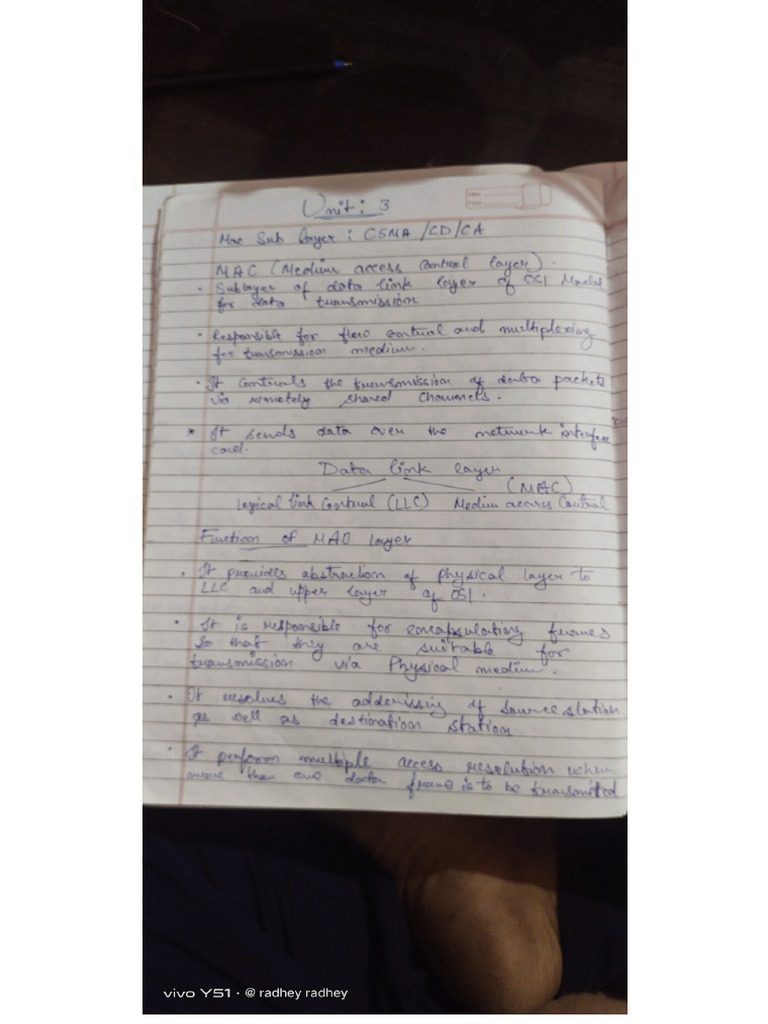 Unit: 3
Mac Sub layer : CSMA /CD/CA
MAC (Medium access control layer).
• Sublayer of data link layer of OSI Model
for data transmission
• Responsible for flow control and multiplexing
for transmission medium.
• It controls the transmission of data packets
via remotely shared channels.
• It sends data over the network interface
card.
Data link layer
(MAC)
Logical link Control (LLC) Medium access Control
Function of MAC layer
• It provides abstraction of physical layer to
LLC and upper layer of OSI.
• It is responsible for encapsulating frames
So that they are suitable for
transmission via Physical medium.
• It resolves the addressing of source station
as well as destination station
• It perform multiple access resolution when
more than one data frame is to be transmitted
vivo Y51 · @ radhey radhey